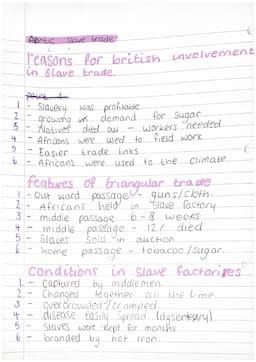 Atlantic slave trade
reasons for british involvement
in slave trade.
1 - Slavery was profitable
2 - growing in demand for sugar
3 - Natives died out - workers needed
4 - Africans were used to field work
5 - Easier trade links
6 - Africans were used to the climate
features of triangular trade
1 - out ward passage - guns/cloth.
2 - Africans held in slave factory
3 - middle passage 6-8 weeks
4 - middle passage - 12% died
5 - Slaves sold in auction
6 - home passage - tobacoo/sugar.
Conditions in slave factorires
1 - captured by middlemen.
2 - Changed together all the time.
3 - overcrowded/cramped
4 - disease easily spread (dysentery)
5 - Slaves were kept for months
6 - branded by hot iron.